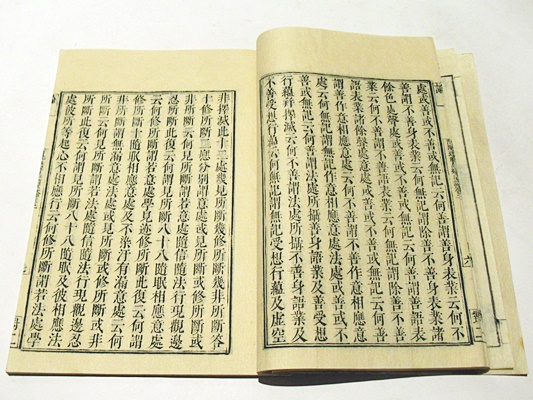 處或善或不善或無記云何善謂善身表業云何不
善謂不善身表業云何無記謂除善不善身表業諸
餘色處聲處或善或不善或無記云何善謂善語表
業云何不善謂不善語表業云何無記謂除善不善
語表業諸餘聲處意處或善或不善或無記云何善
謂善作意相應意處云何不善謂不善作意相應意
處云何無記謂無記作意相應意處法處或善或不
善或無記云何善謂法處所攝善身語業及善受想
行蘊并擇滅云何不善謂法處所攝不善身語業及
不善受想行蘊云何無記謂無記受想行蘊及虛空
非擇滅此十二處幾見所斷幾修所斷幾非所斷答
十修所斷二應分別謂意處或見所斷或修所斷或
非所斷云何見所斷謂若意處隨信隨法行現觀邊
忍所斷此復云何謂見所斷八十八隨眠相應意處
云何修所斷謂若意處學見迹修所斷此復云何謂
修所斷十隨眠相應意處及不染汙有漏意處云何
非所斷謂無漏意處法處或見所斷或修所斷或非
所斷云何見所斷謂若法處隨信隨法行現觀邊忍
所斷此復云何謂見所斷八十八隨眠及彼相應法
處彼所等起心不相應行云何修所斷謂若法處學